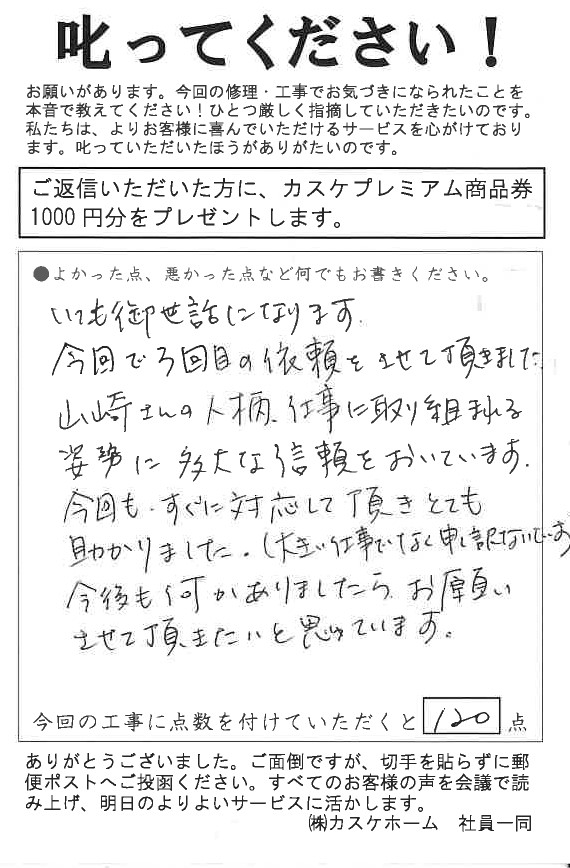 叱ってください！
お願いがあります。今回の修理・工事でお気づきになられたことを
本音で教えてください！ひとつ厳しく指摘していただきたいのです。
私たちは、よりお客様に喜んでいただけるサービスを心がけており
ます。叱っていただいたほうがありがたいのです。
ご返信いただいた方に、カスケプレミアム商品券
1000円分をプレゼントします。
●よかった点、悪かった点など何でもお書きください。
いつも御世話になります。
今回で3回目の依頼をさせて頂きました。
山崎さんの人柄、仕事に取り組まれる
姿勢に多大な信頼をおいています。
今回も、すぐに対応して頂きとても
助かりました。(大きい仕事でなく申し訳ないです)
今後も何かありましたら、お願い
させて頂きたいと思っています。
今回の工事に点数を付けていただくと 120 点
ありがとうございました。ご面倒ですが、切手を貼らずに郵
便ポストへご投函ください。すべてのお客様の声を会議で読
み上げ、明日のよりよいサービスに活かします。
㈱カスケホーム　社員一同